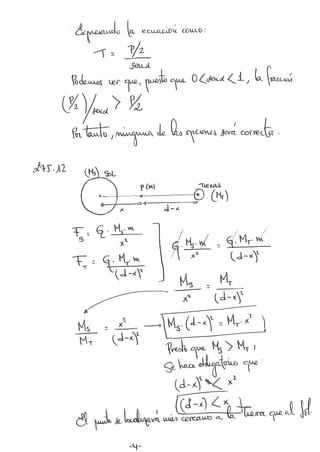 Expresando la ecuación como:
T = P/2 / senα
Podemos ver que, puesto que 0<senα<1, la fracción
(P/2)/senα > P/2
Por tanto, ninguna de las opciones será correcta.
275.12
(Ms) SOL
P(m)
TIERRA
(MT)
x
d-x
Fs = G · Ms·m / x²
FT = G · MT·m / (d-x)²
G · Ms·m / x² = G · MT·m / (d-x)²
Ms / x² = MT / (d-x)²
Ms / MT = x² / (d-x)² → Ms · (d-x)² = MT · x²
Puesto que Ms > MT,
Se hace obligatorio que:
(d-x)² < x²
(d-x) < x
El punto se localizará más cercano a la Tierra que al Sol.
-4-